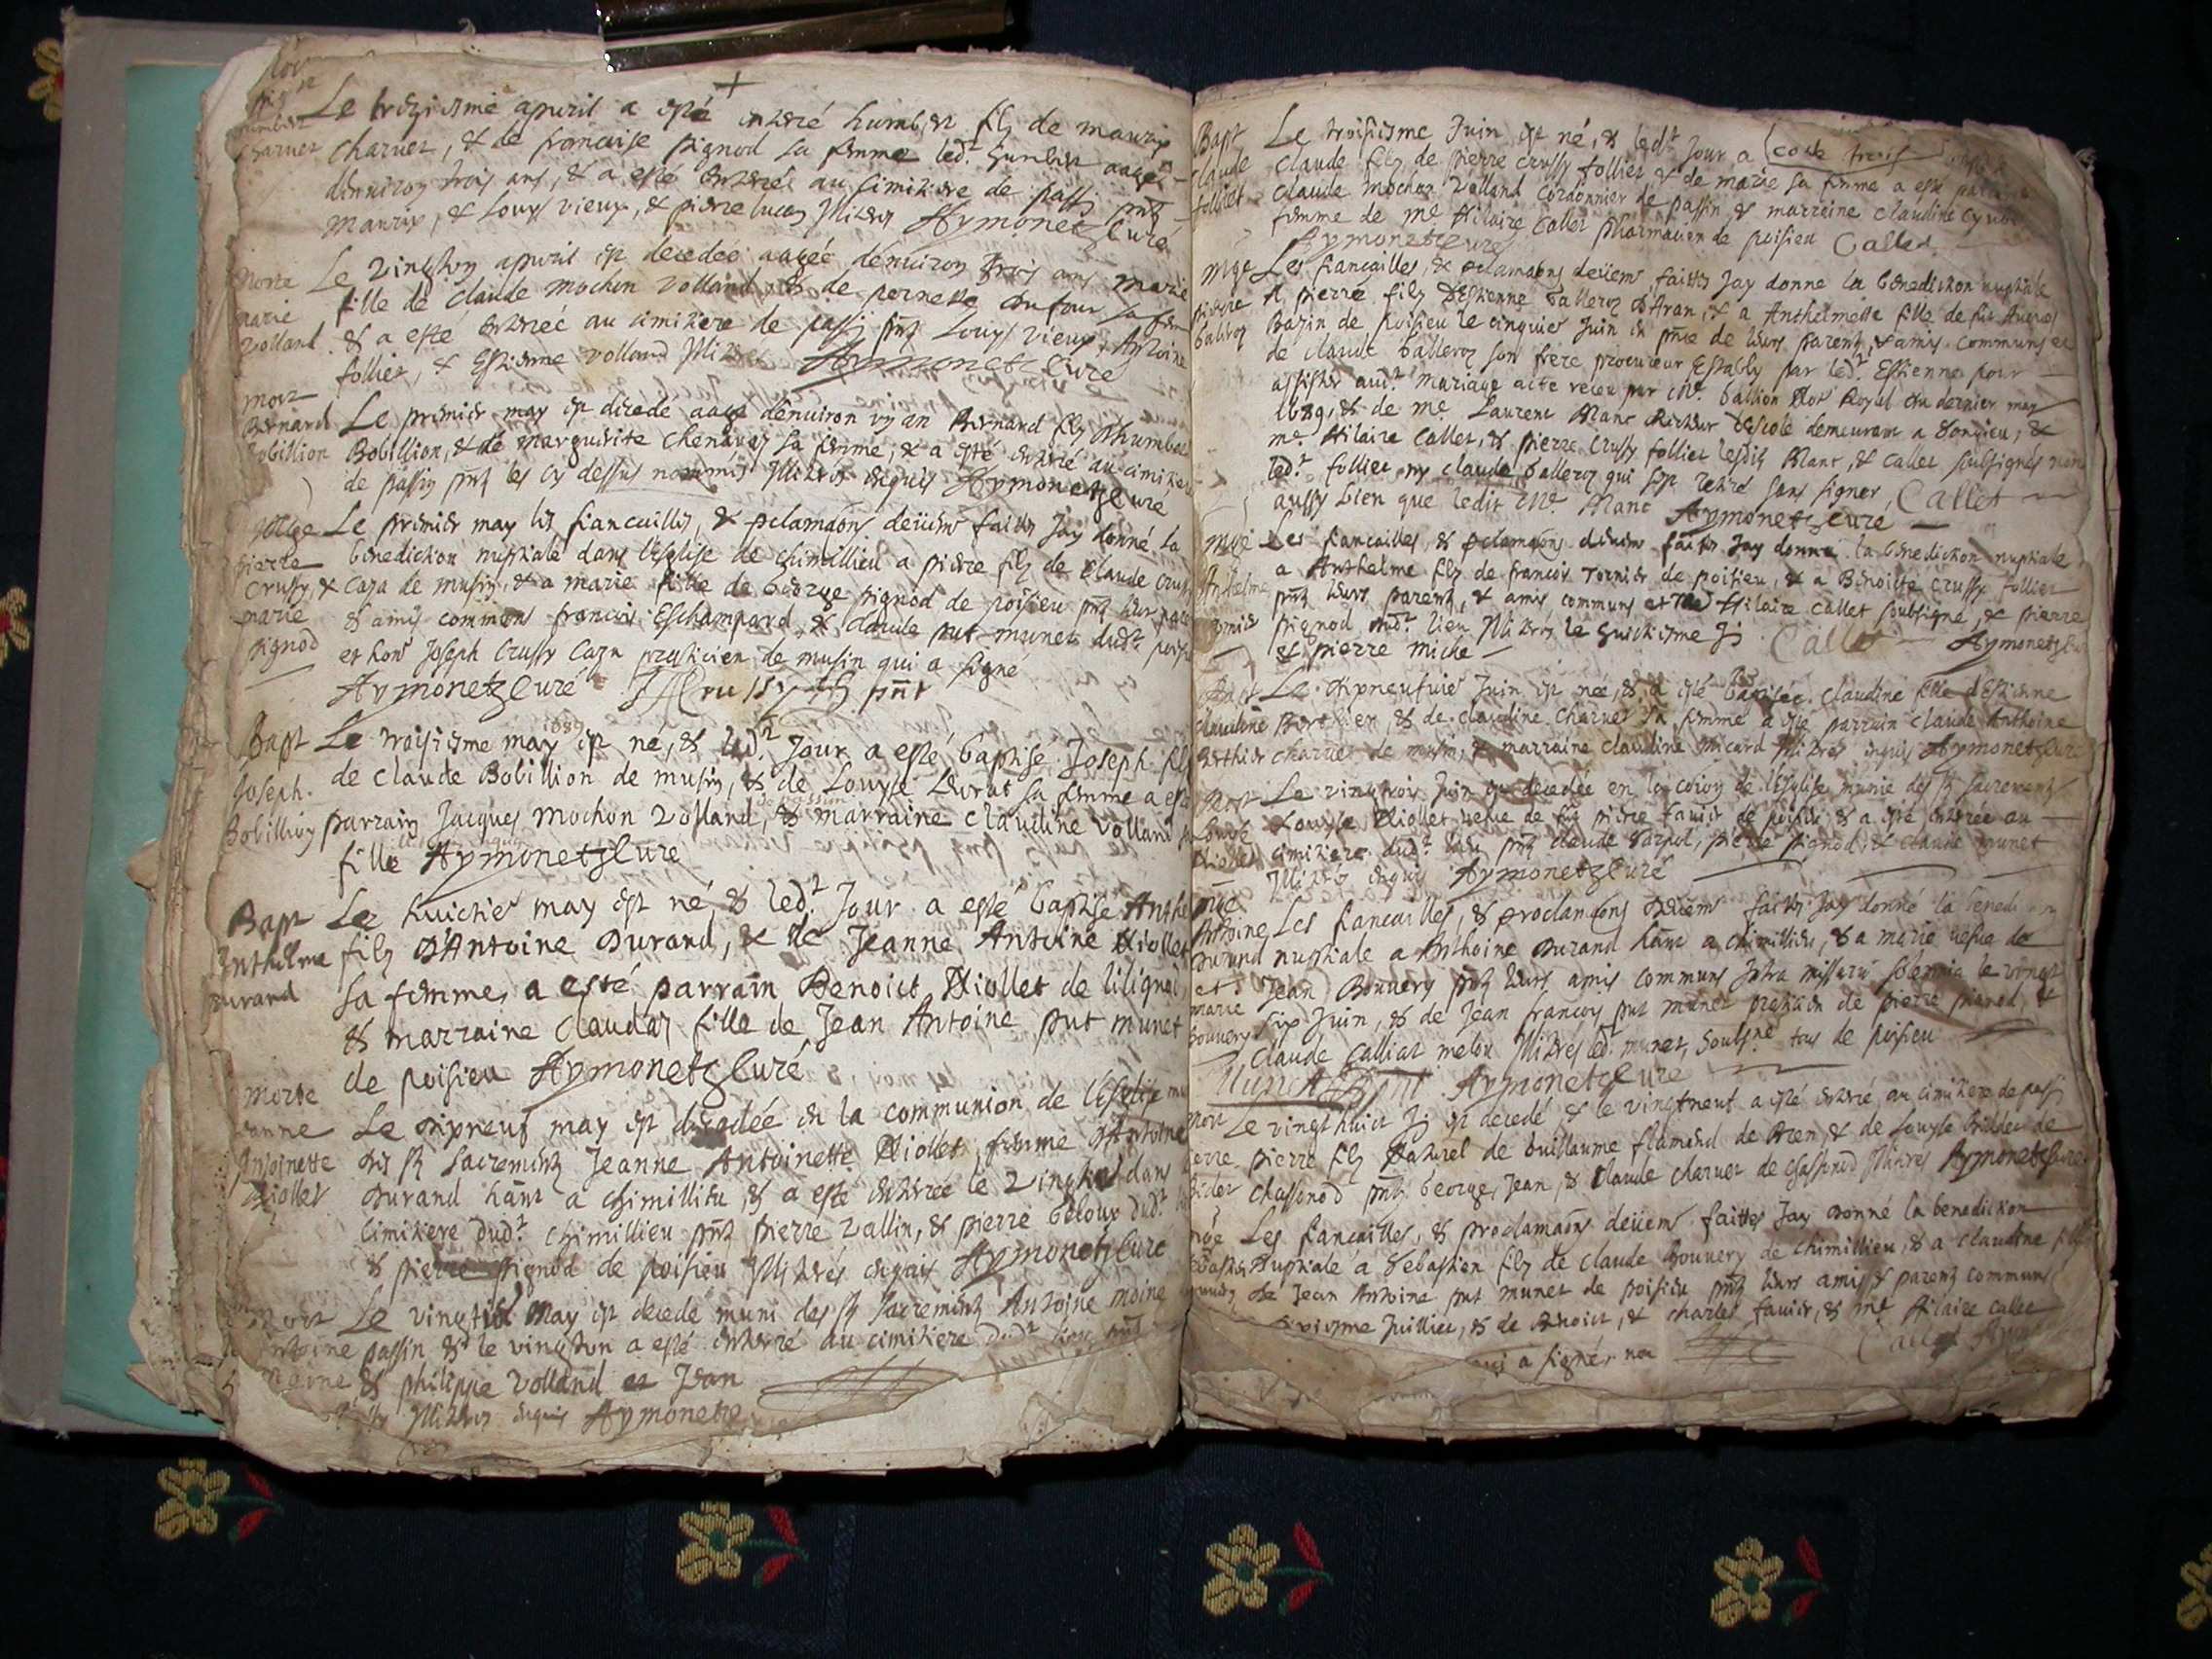 Le treziesme apvril a esté enterré humbert filz de maurix
charvet, & de francoise pignod sa femme led.t humbert aagé
denviron trois ans, & a esté enterré au cimitiere de passin pntz
maurix, & Louys vieux, & pierre lucas Aymonetz Curé
Morte
marie
volland
Le vingthun apvril est decedée aagée denviron trois ans marie
fille de claude mochon volland & de pernette dufour sa fem
& a esté enterrée au cimitiere de passin pntz Louys vieux, Antoine
follier, & Estienne volland Aymonetz Curé
mort
Bernard
Bobillion
Le premier may est decedé aagé denviron un an Bernard filz dhumber
Bobillion, & de marguerite chenavas sa femme, & a esté enterré au cimitiere
de passin pntz les cy dessus nommés illitérés enquis Aymonetz Curé
Mge
pierre
Crussy, &
marie
pignod
Le premier may les fiancailles, & pclamaons deüem.t faittes Jay donné la
benediction nuptiale dans Lesglise de chimillieu a pierre filz de Claude Crussy
Caza de musin, & a marie fille de George pignod de poisieu pntz leurs parents
& amis communs francois Eschampard, & claude put munet dud.t poisieu
et hon.e Joseph Crussy Caza praticien de musin qui a signé
Aymonetz Curé JCrussy pnt
Bapt
Joseph
Bobillion
1689
Le troisiesme may est né, & led.t Jour a esté baptisé Joseph filz
de claude Bobillion de musin, & de Louyse Levrat sa femme a esté
parrain Jacques mochon volland, & marraine claudine volland sa
de passin
fille Aymonetz Curé
Bapt
Anthelme
Durand
Le huictie may est né & led.t Jour a esté baptisé Anthe
filz D'Antoine Durand, & de Jeanne Antoine Niollet
sa femme, a esté parrain Benoict Niollet de liligna
& marraine claudaz fille de Jean Antoine put munet
de poisieu Aymonetz Curé
Morte
Janne
Antoinette
Niollet
Le dixneuf may est decedée en la communion de Lesglise mu
des st sacrementz Jeanne Antoinette Niollet femme d'Antoine
Durand hant a chimillieu, & a esté enterrée le vingties dans
cimitiere dud.t chimillieu pntz pierre vallin, & pierre beloux dud.t
& pierre pignod de poisieu illitérés enquis Aymonetz Curé
Mort
Antoine
moine
Le vingties may est decedé muni des st sacrementz Antoine moine
passin & le vingthun a esté enterré au cimitiere dud.t lieu pntz
& philippe volland et Jean
illitérés enquis Aymonetz
Bapt
claude
follier
Le troisiesme Juin est né, & led.t Jour a
(cotte trois
claude filz de pierre crussy follier & de marie sa femme a esté parrain
claude mochon volland cordonnier de passin & marraine claudine
femme de me Hilaire Callet pharmacien de poisieu Callet
Aymonetz Curé
Mge
pierre
Balleroz
Les fiancailles, & pclamaons deüem.t faittes Jay donné la benediction nuptiale
A pierre filz DEstienne balleroz DAran, & a Anthelmette fille de feu
Bazin de poisieu le cinquies Juin en pnce de leurs parentz, & amis communs et
de claude balleroz son frere procureur Estably par led.t Estienne pour
assister aud.t mariage acte receu par Me ballion Not Royal du dernier may
1689, & de me Laurent Blanc Recteur descole demeurant a Songieu, &
me Hilaire Callet, & pierre Crussy follier lesdits Blanc, & Callet soubsignés non
led.t follier ny claude balleroz qui sest retiré sans signer
aussy bien que ledit Me Blanc Aymonetz Curé Callet
Mge
Anthelme
Tornier
Les fiancailles, & pclamaons deüem.t faittes Jay donné la benediction nuptiale
a Anthelme filz de francois Tornier de poisieu, & a Benoicte crussy follier
pntz leurs parentz, & amis communs et me Hilaire callet soubsigné, & pierre
pignod dud.t lieu illitérés le huictiesme Jn
et pierre miche Callet Aymonetz
Bapt
claudine
Berthier
Le dixneufvies Juin est née, & a esté baptisée claudine fille d'Estienne
Berthier, & de claudine charvet sa femme a esté parrain claude Anthoine
charvet de musin, & marraine claudine micard illitérés enquis Aymonetz Curé
Mort
Louyse
Niollet
Le vingtrois Juin est decedée en la coion de Lesglise munie des st sacrementz
Louyse Niollet vefve de feu pierre favier de poisieu & a esté enterrée au
cimitiere dud.t lieu pntz claude Carpod, pierre pignod, & claude munet
illitérés enquis Aymonetz Curé
Mge
Antoine
Durand
et
marie
bouvery
Les fiancailles, & proclamaons deüem.t faittes Jay donné la benediction
nuptiale a Anthoine Durand hant a chimillieu, & a marie vefve de
Jean Bouvery pntz leurs amis communs Intra missaru solemnia le vingt
six Juin, & de Jean francois put munet praticien de pierre pignod, &
claude Calliat melon illitérés led.t munet, soubsné tous de poisieu
Munet pnt Aymonetz Curé
Mort
pierre
Le vingthuict Jn est decedé & le vingtneuf a esté enterré au cimitiere de passin
pierre filz Naturel de Guillaume flamand de Aren, & de Louyse Didier de
chassinod pntz George, Jean, & claude charvet de chassinod illitérés Aymonetz Curé
Mge
Les fiancailles, & proclamaons deüem.t faittes Jay donné la benediction
Nuptiale a Sebastien filz de claude Bouvery de chimillieu, & a claudine fille
de Jean Antoine put munet de poisieu pntz leurs amis & parentz communs
Juilliet, & de Benoict, & charles favier, & me Hilaire callet
qui a signé, non Callet